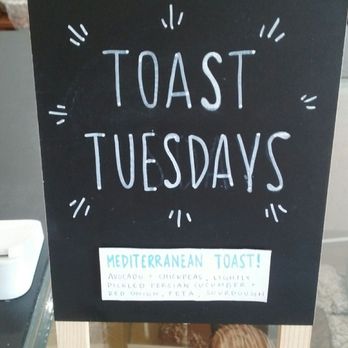 TOAST
TUESDAYS
MEDITERRANEAN TOAST!
AVOCADO + CHICKPEAS, LIGHTLY
PICKLED PERSIAN CUCUMBER +
RED ONION, FETA, SOURDOUGH